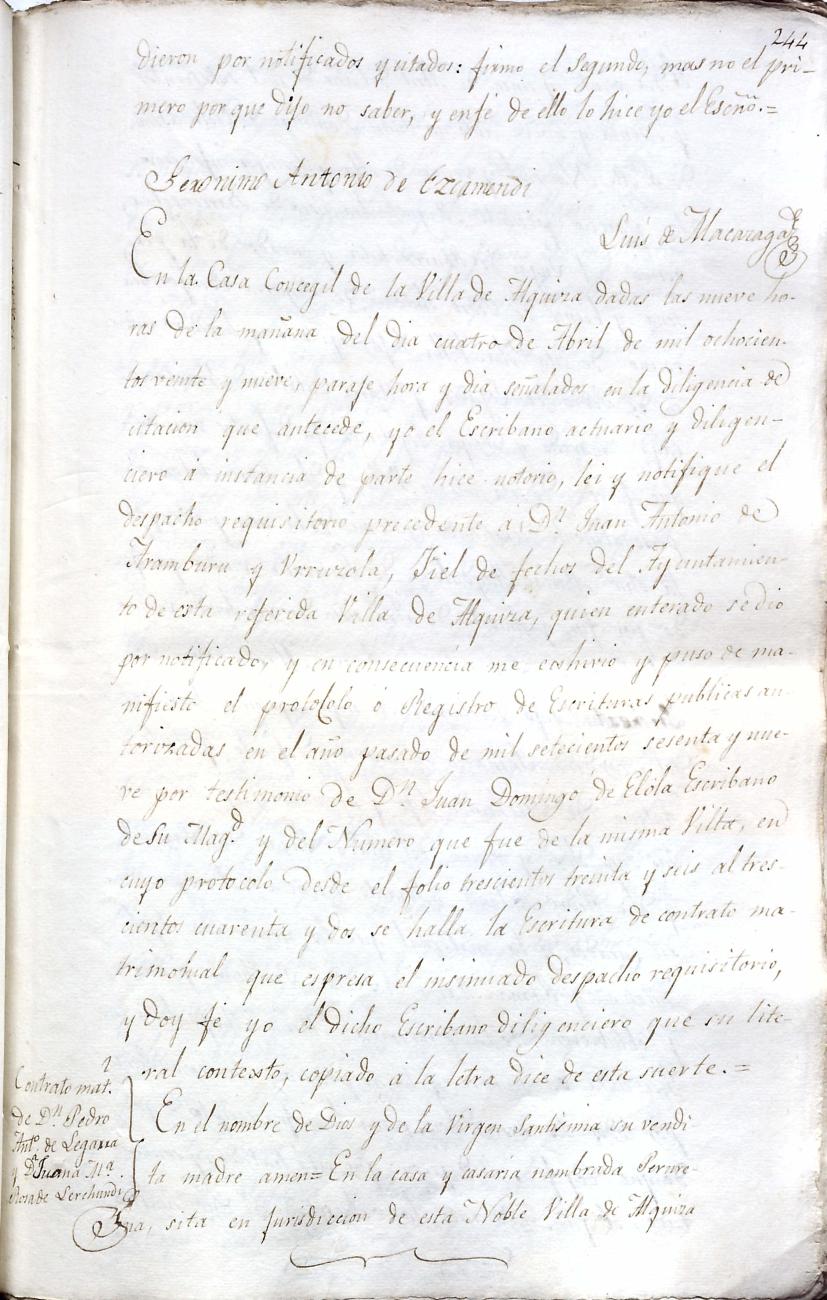 244
dieron por notificados y citados: firmo el segundo, mas no el pri-
mero por que dijo no saber, y en fé de ello lo hice yo el Escño.=
Geronimo Antonio de Ezcamendi
Luis de Macazaga
En la Casa Concegil de la Villa de Alquiza dadas las nueve ho-
ras de la mañana del dia cuatro de Abril de mil ochocien-
tos veinte y nueve, paraje hora y dia señalados en la diligencia de
citacion que antecede, yo el Escribano actuario y diligen-
ciero á instancia de parte hice notorio, lei y notifique el
despacho requisitorio precedente á Dn. Juan Antonio de
Aramburu y Urruzola, Fiel de fechos del Ayuntamien-
to de esta referida Villa de Alquiza, quien enterado se dio
por notificado, y en consecuencia me ecshivio y puso de ma-
nifiesto el protocolo ó Registro de Escrituras publicas au-
torizadas en el año pasado de mil setecientos sesenta y nue-
ve por testimonio de Dn Juan Domingo de Elola Escribano
de Su Magd. y del Numero que fue de la misma Villa, en
cuyo protocolo desde el folio trescientos treinta y seis al tres-
cientos cuarenta y dos se halla la Escritura de contrato ma-
trimonial que espresa el insinuado despacho requisitorio,
y doy fé yo el dicho Escribano diligenciero que su lite-
ral contexto, copiado a la letra dice de esta suerte.=
Contrato matl.
de Dn Pedro
Anto. de Legarra
y Da Juana Ma.
Rosa de Lerchundi
En el nombre de Dios y de la Virgen Santisima su vendi
ta madre amen= En la casa y caseria nombrada Perure-
na, sita en Jurisdiccion de esta Noble Villa de Alquiza